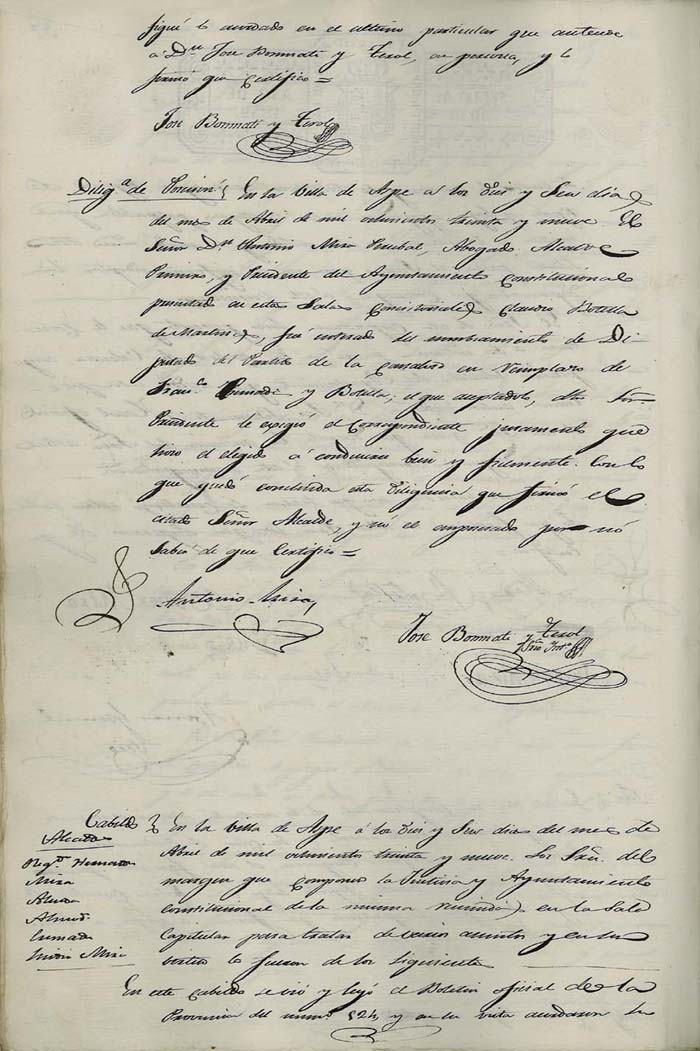 fiqué lo acordado en el ultimo particular que antecede
á Dn. Jose Bonmati y Terol, en persona, y lo
firmó que Certifico =
Jose Bonmati y Terol
Diliga. de En la Villa de Aspe á los Dies y Seis dias
del mes de Abril de mil ochocientos treinta y nueve. El
Señor Dn. Antonio Mira Abogado Alcalde
Primero, y Presidente del Ayuntamiento Constitucional
presentado en esta Sala Consistorial Claudio Botella
de Martinez, fué enterado del nombramiento de Di
putado del Partido de la en reemplazo de
Franco. y Botella; el que aceptado, dho. Señor
Presidente le exigió el Correspondiente juramento que
hizo el elegido á conducirse bien y fielmente. Con lo
que quedó concluida esta Diligencia que firmó el
citado Señor Alcalde, y nó el por nó
Saber de que Certifico =
Antonio Mira,
Jose Bonmati y Terol
Srio. Into.
Cabildo En la Villa de Aspe á los Dies y Seis dias del mes de
Alcalde
Abril de mil ochocientos treinta y nueve. Los Sres. del
Regor.
margen que componen la Justicia y Ayuntamiento
Mira
constitucional de la misma reunidos en la Sala
Almodi
Capitular para tratar de varios asuntos y en su
Mira
lo fueron de los Siguientes
En este Cabildo se vió y leyó el Boletin oficial de la
Provincia del numo. 524, y en su vista acordaron su